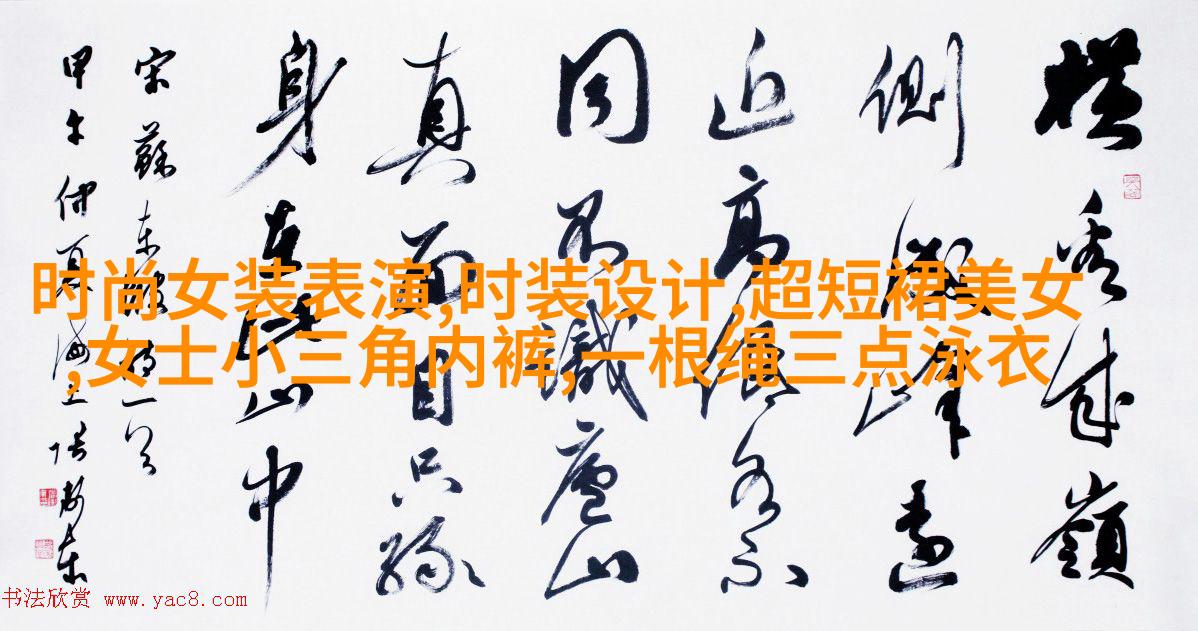 横看成嶺
側成峰遠
近高低各不
同不識廬山
真面目只緣
身在此山中
宋蘇東坡詩一首
甲午仲夏
时尚女装表演,时装设计,超短裙美女
,女士小三角内裤,一根绳三点泳衣
书法欣赏 www.yac8.com